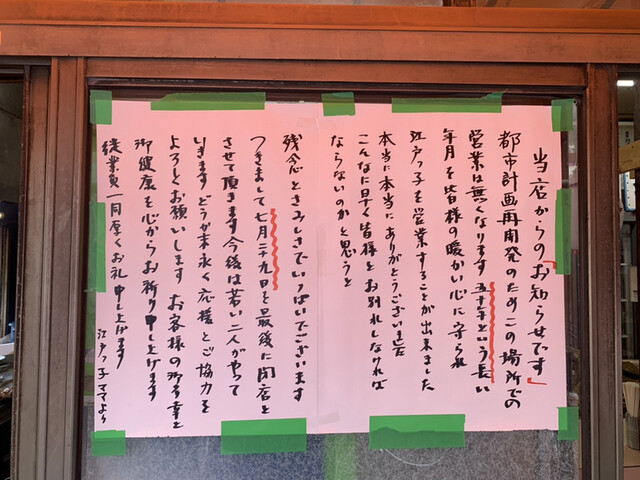 当店からの「お知らせです」
都市計画再開発のためこの場所での
営業は無くなります 五十年という長い
年月を皆様の暖かい心に守られ
江戸っ子を営業することが出来ました
本当に本当にありがとうございました
こんなに早く皆様とお別れしなければ
ならないのかと思うと
残念とさみしさでいっぱいでございます
つきまして七月二十九日を最後に閉店と
させて頂きます今後は若い二人がやって
いきますどうか末永く応援とご協力を
よろしくお願いします お客様の御多幸と
御健康を心からお祈り申し上げます
従業員一同厚くお礼申し上げます
江戸っ子ママより